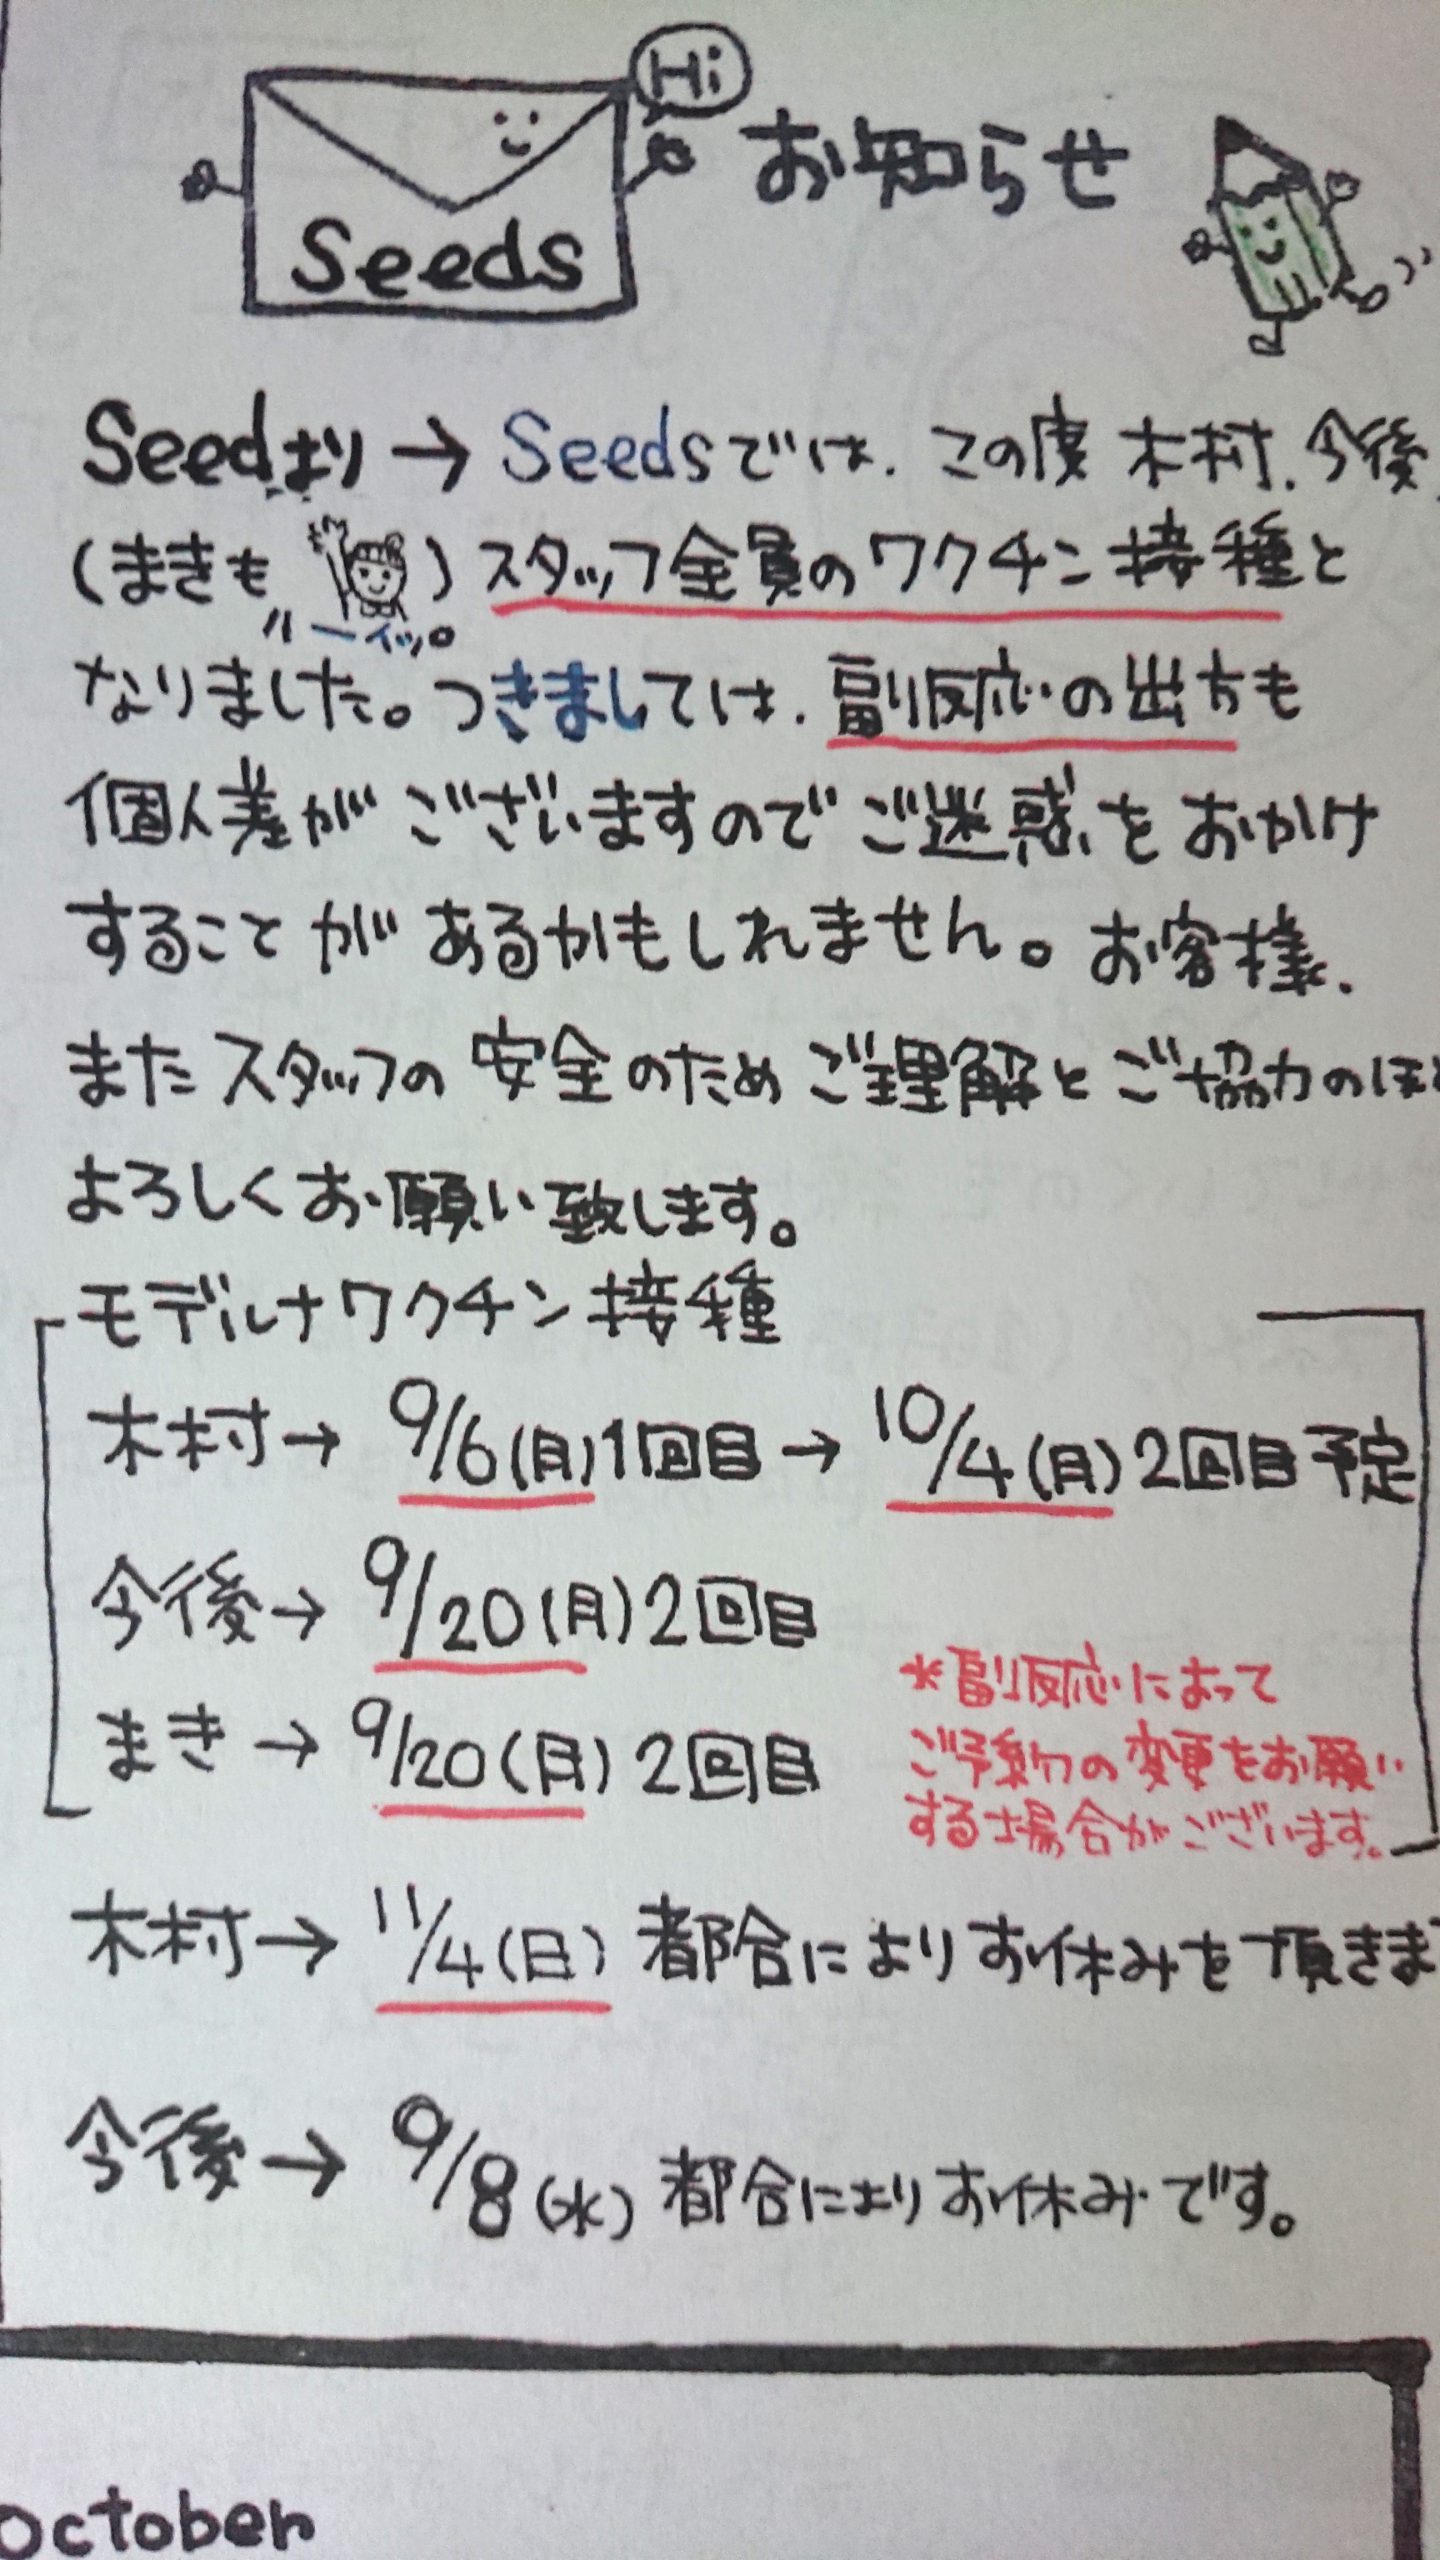 Hi
お知らせ
Seeds
Seedより→Seedsでは、この度 木村、今後、
(まきも)スタッフ全員のワクチン接種と
ハーイッ。
なりました。つきましては、副反応の出方も
個人差がございますのでご迷惑をおかけ
することがあるかもしれません。お客様、
またスタッフの安全のためご理解とご協力のほど
よろしくお願い致します。
モデルナワクチン接種
木村→9/6(月)1回目→10/4(月)2回目予定
今後→9/20(月)2回目
まき→9/20(月)2回目
*副反応によって
ご予約の変更をお願い
する場合がございます。
木村→11/4(日)都合によりお休みを頂きま
今後→9/8(水)都合によりお休みです。
October